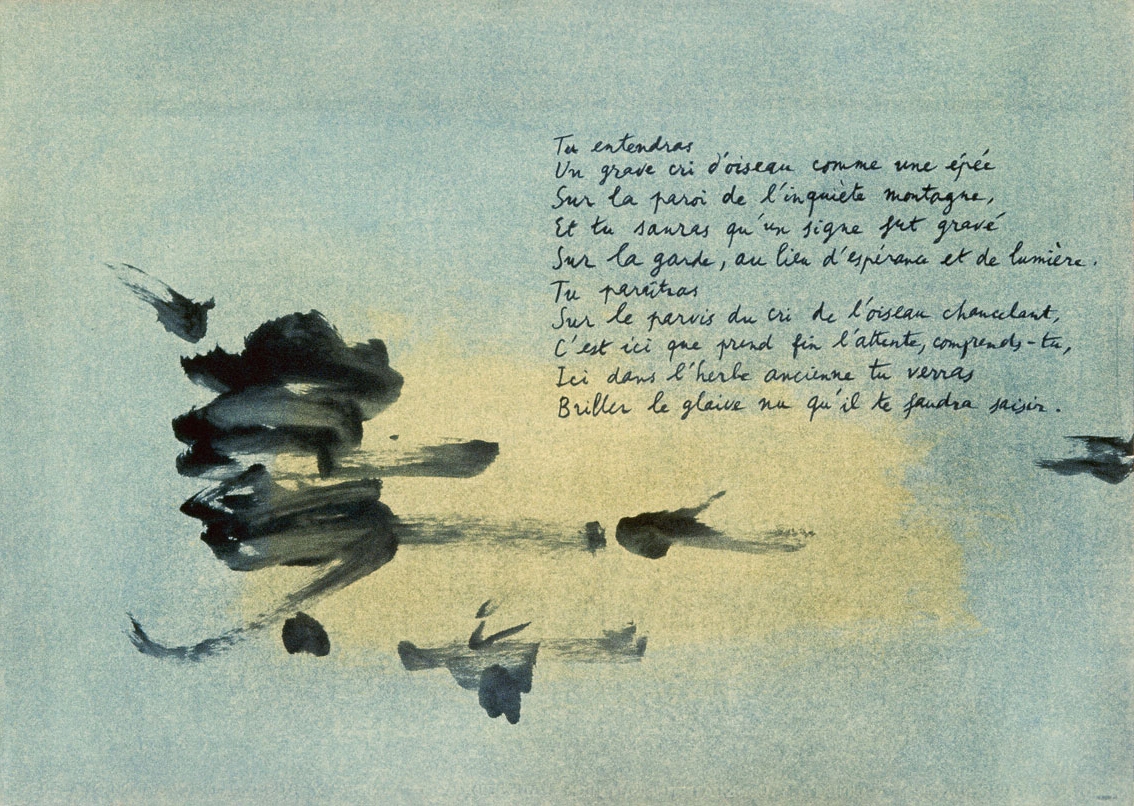 Tu entendras
Un grave cri d'oiseau comme une épée
Sur la paroi de l'inquiète montagne,
Et tu sauras qu'un signe fut gravé
Sur la garde, au lieu d'espérance et de lumière.
Tu paraîtras
Sur le parvis du cri de l'oiseau chancelant,
C'est ici que prend fin l'attente, comprends-tu,
Ici dans l'herbe ancienne tu verras
Briller le glaive nu qu'il te faudra saisir.